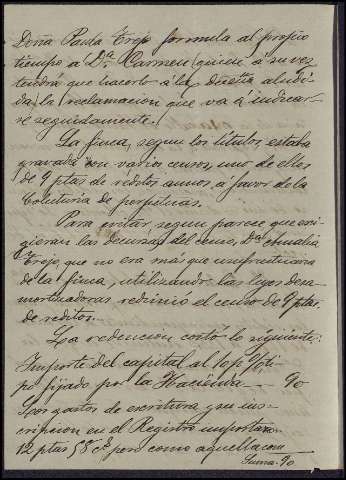 Doña Paula Trejo formula al propio
tiempo a Dª Carmen (quien á su vez
tendrá que hacerlo á la directa aludi-
da) la reclamación que va á indicar-
se seguidamente.
La finca, segun los títulos, estaba
gravada con varios censos, uno de ellos
de 9 ptas de réditos anuos, á favor de la
Colecturia de perpetuas.
Para evitar segun parece que exi-
gieran las decursas del censo, Dª Amalia
Trejo, que no era más que usufructuaria
de la finca, utilizando las leyes desa-
mortizadoras redimió el censo de 9 ptas
de reditos.
La redención costó lo siguiente:
Importe del capital al 10 p% ti-
po fijado por la Hacienda — 90
Los gastos de escritura y su ins-
cripcion en el Registro importaron
12 ptas 58 cs pero como aquella
Suma 90